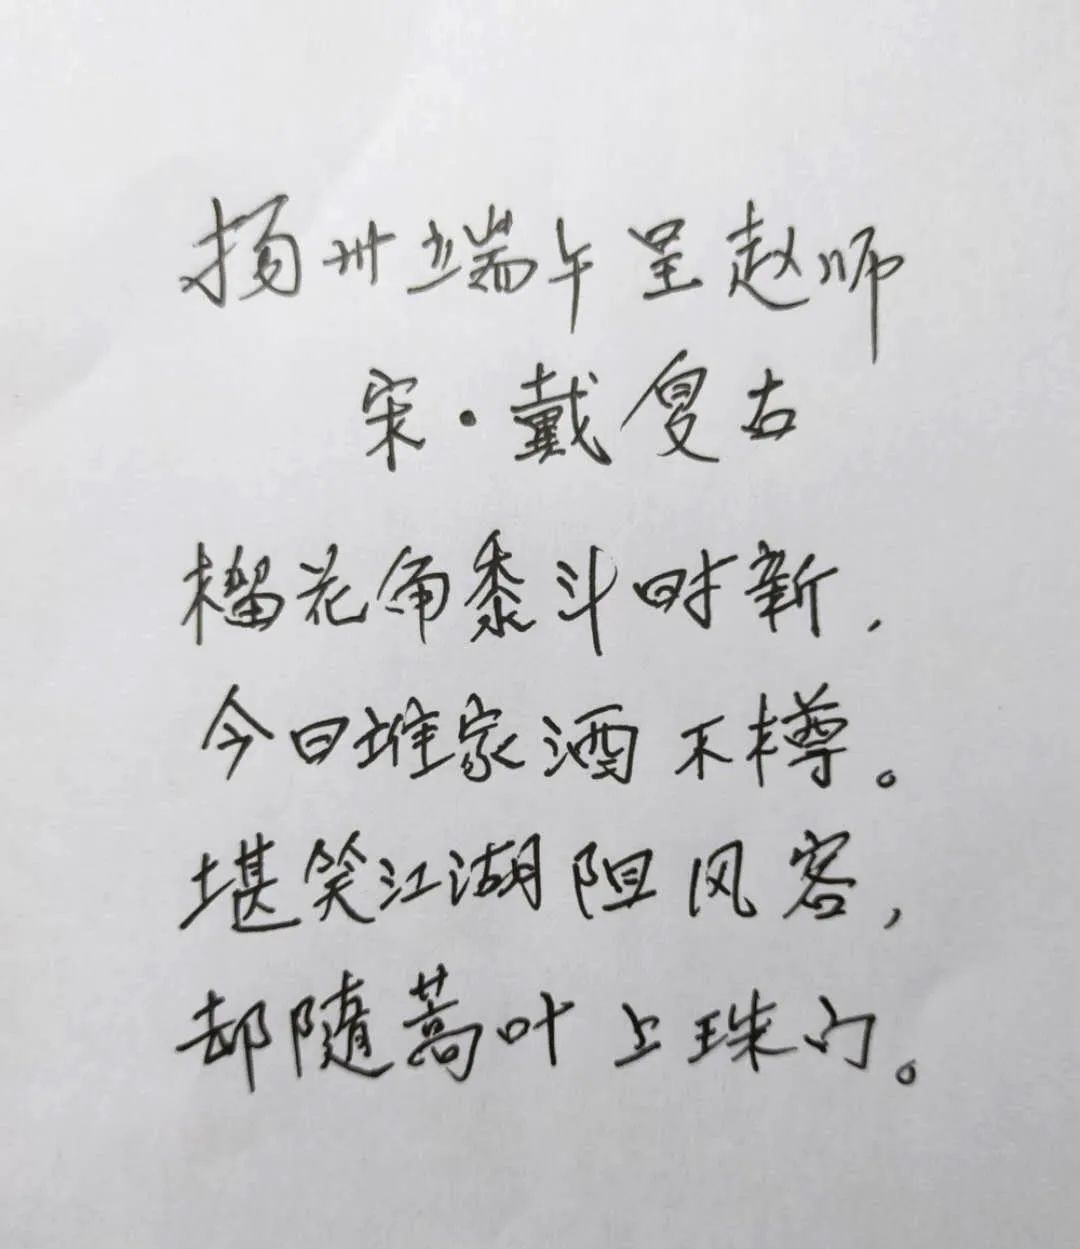 扬州端午呈赵师
宋·戴复古
榴花角黍斗时新，
今日堆家酒不樽。
堪笑江湖阻风客，
却随蒿叶上珠门。